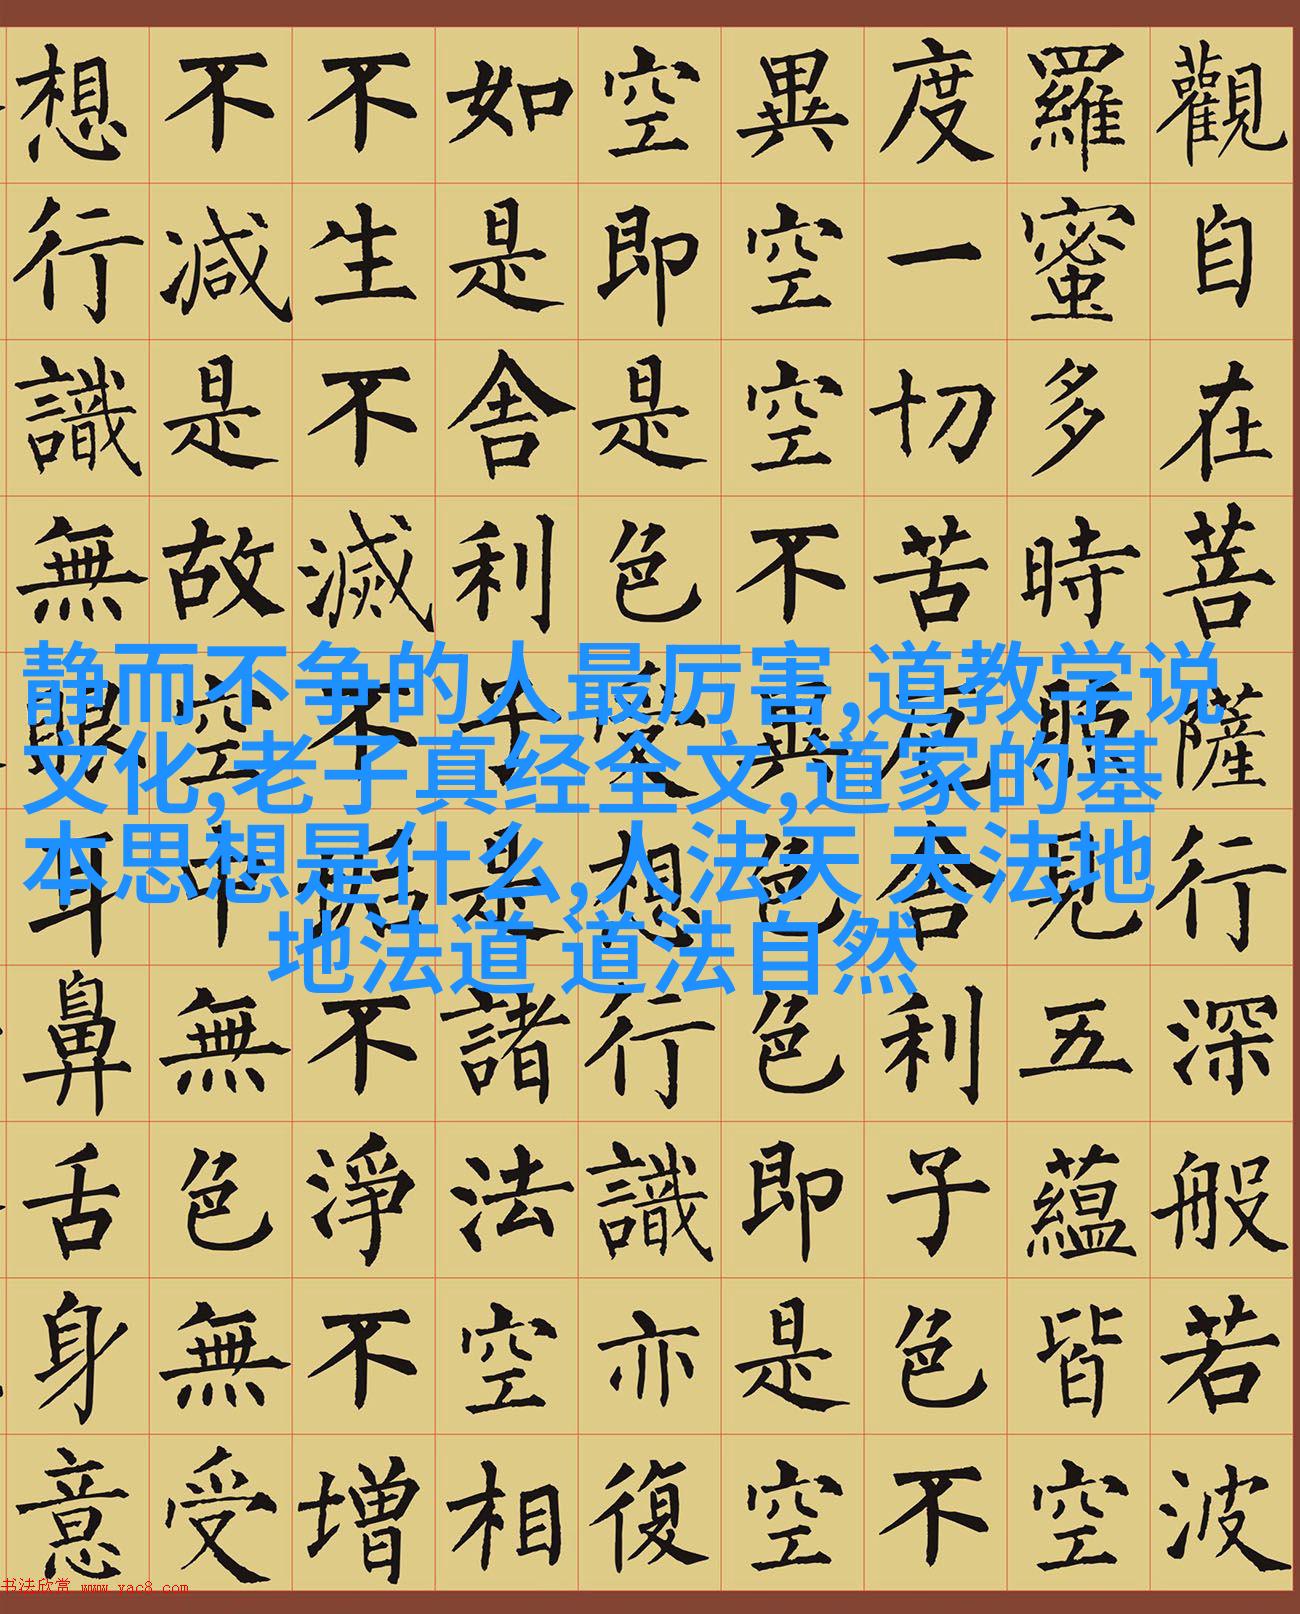 觀自在菩薩行深般若波
羅蜜多時照見五蘊皆空
度一切苦厄舍利子色不
異空空不異色色即是空
空即是色受想行識亦復
如是舍利子是諸法空相
不生不滅不垢不淨不增
不減是故空中無色無受
想行識無眼耳鼻舌身意
静而不争的人最厉害,道教学说
文化,老子真经全文,道家的基
本思想是什么,人法天 天法地
地法道 道法自然
书法欣赏 www.yac8.com